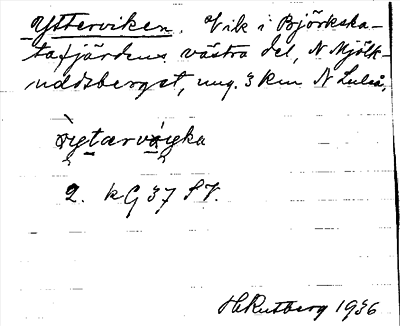 Ytterviken. Vik i Björkska-
tafjärdens västra del, N Mjölk-
uddsberget, ung. 3 km N Luleå.
2. kG 37 SV.
H. Rutberg 1936